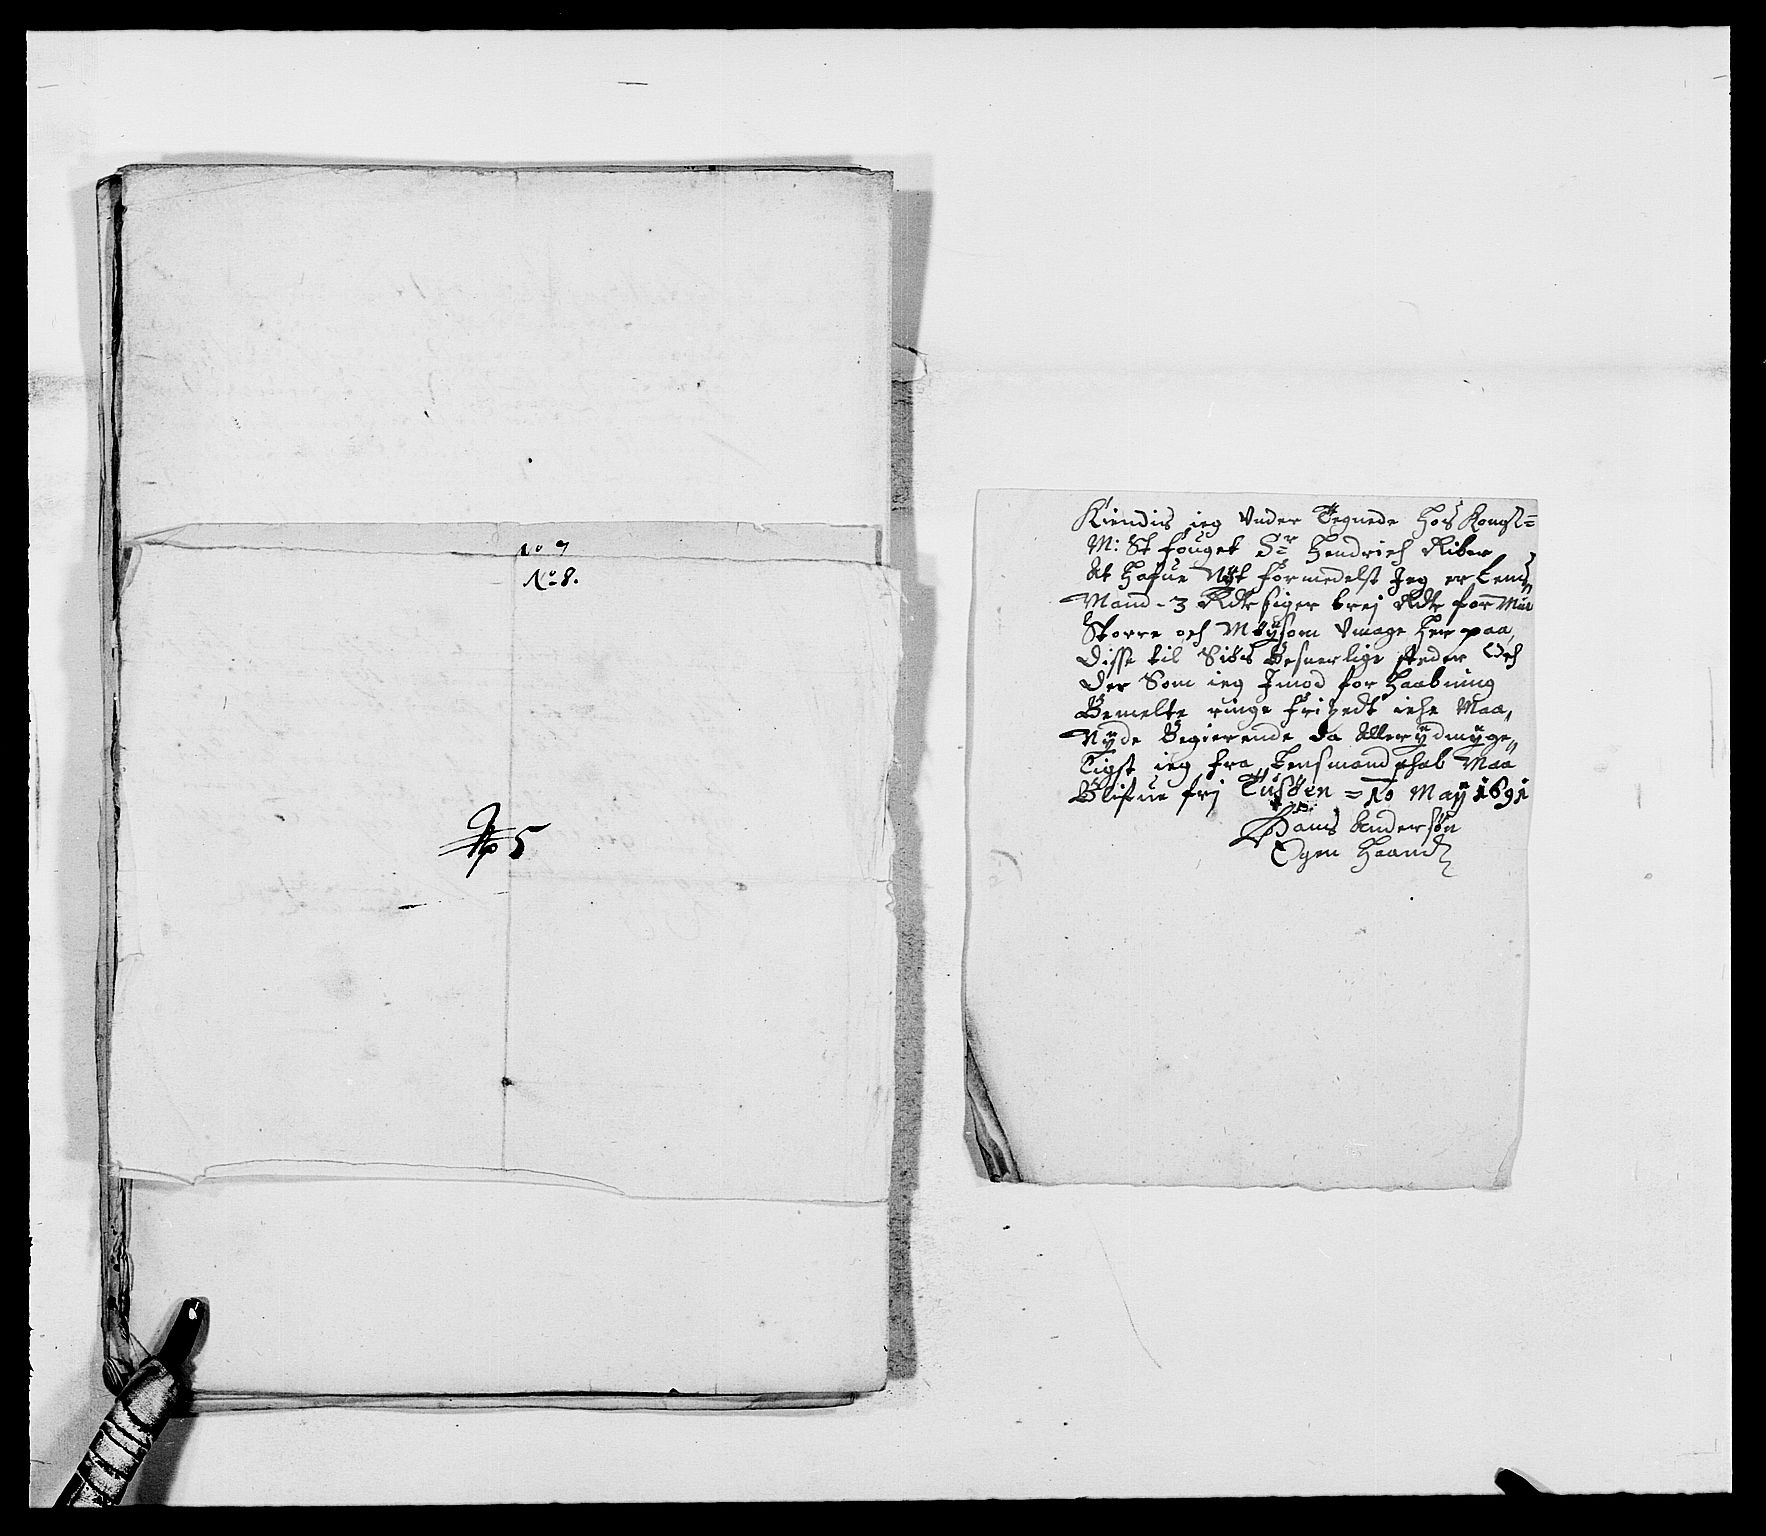 No 7
No 8.
No 5
Kiendis ieg Under Tegnede hos Kongl=
M: St fouget Sr Hendrich Riber
At hafue Nÿt formedelst Jeg er Lens
Mand - 3 Rdr siger trej Rdr for Min
Storre och Møÿsom Umage her paa,
disse til Siøs Besuerlige steder Och
der Som ieg Jmod forhaabning
Bemelte ringe frihedt iche Maa,
Nÿde Begierende da Allerÿdmÿge,,
ligst ieg fra Lensmandschab Maa
Blifue frj Tusøen = 10 Maÿ 1691
Hans Andersøn
Egen Haand